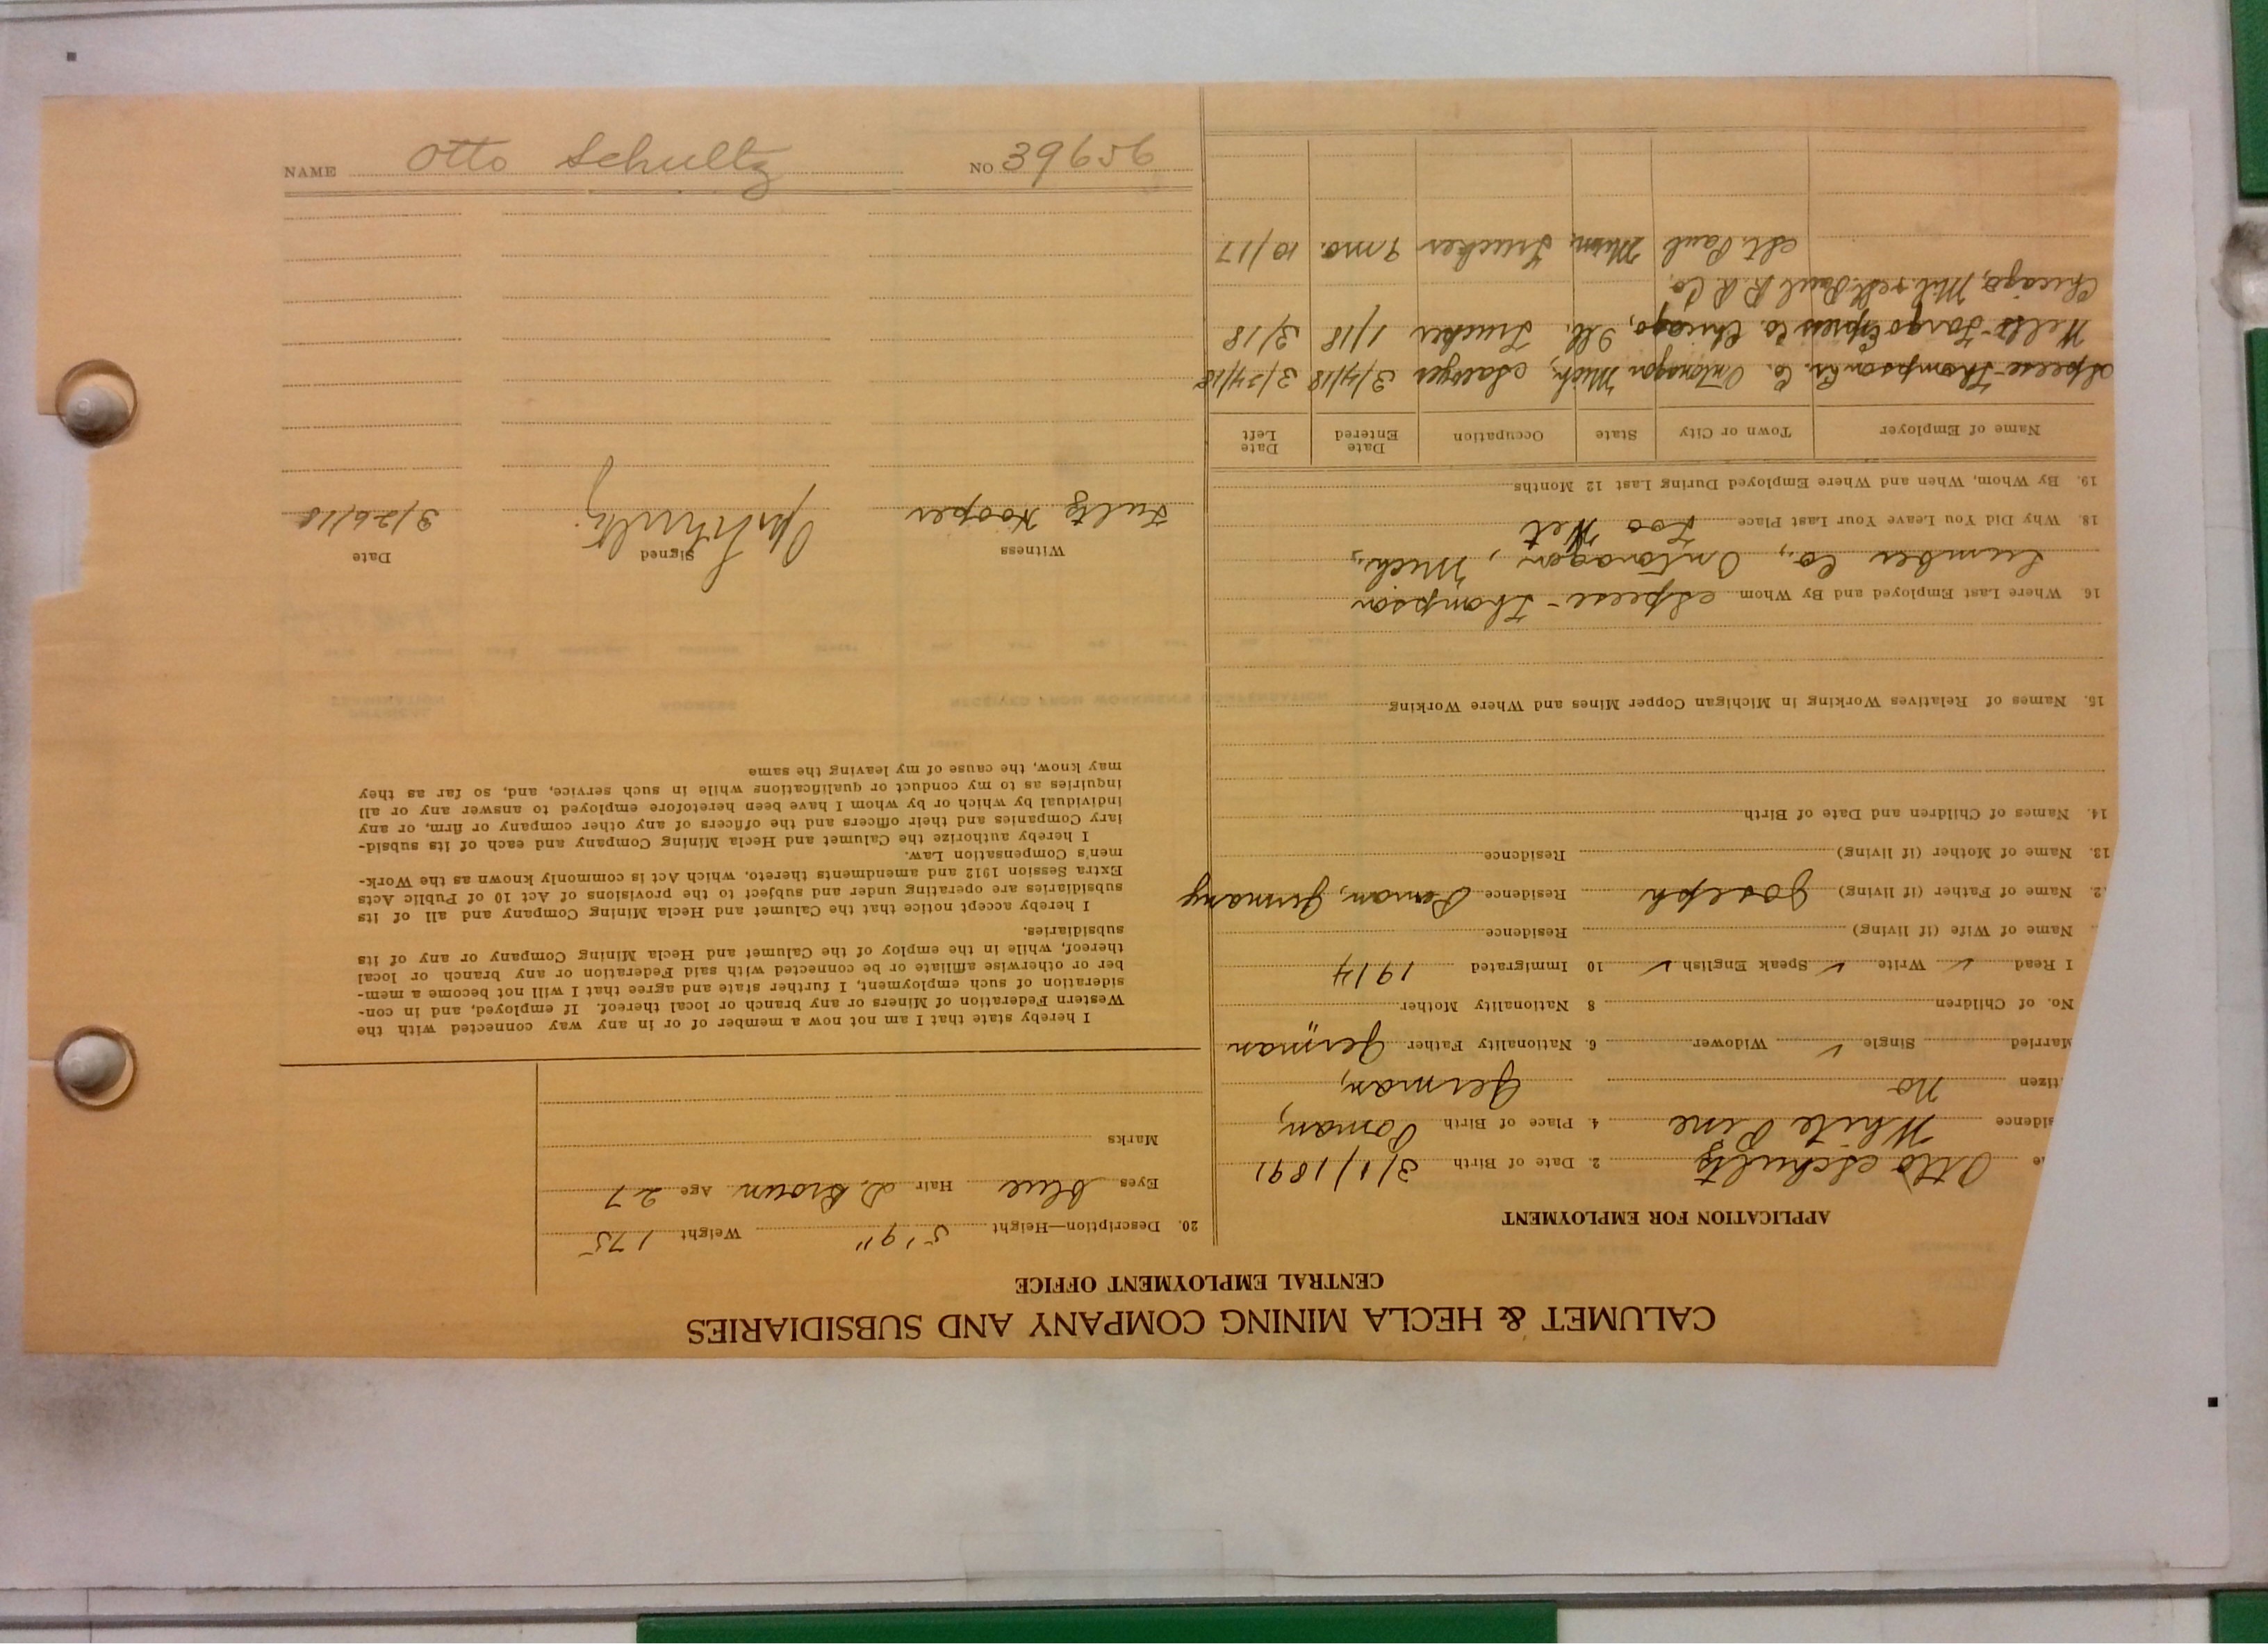 NAME Otto Schultz NO 39656
CALUMET & HECLA MINING COMPANY AND SUBSIDIARIES
CENTRAL EMPLOYMENT OFFICE
APPLICATION FOR EMPLOYMENT
Otto Schultz 2. Date of Birth 3/1/1891
sidence White Pine 4. Place of Birth Posnan,
tizen no German,
Married Single ✓ Widower 6. Nationality Father German
No. of Children 8 Nationality Mother "
I Read ✓ Write ✓ Speak English ✓ 10 Immigrated 1914
Name of Wife (if living) Residence
2. Name of Father (if living) Joseph Residence Germany
13. Name of Mother (if living) Residence
14. Names of Children and Date of Birth
15. Names of Relatives Working in Michigan Copper Mines and Where Working
16. Where Last Employed and By Whom Spiese-Thompson
Lumber Co., Ontonagon, Mich.,
18. Why Did You Leave Your Last Place Too Wet
19. By Whom, When and Where Employed During Last 12 Months
Name of Employer Town or City State Occupation Date Entered Date Left
Thompson Lr. Co. Ontonagon Mich, 3/4/18 3/24/18
Wells-Fargo Express Co. Chicago, Ill. Trucker 1/18 3/18
Chicago, Mil. & St. Paul R. R. Co.
St. Paul Minn, Trucker 9 mo. 10/17
20. Description—Height 5'9" Weight 175
Eyes blue Hair D. Brown Age 27
Marks
I hereby state that I am not now a member of or in any way connected with the
Western Federation of Miners or any branch or local thereof. If employed, and in con-
sideration of such employment, I further state and agree that I will not become a mem-
ber or otherwise affiliate or be connected with said Federation or any branch or local
thereof, while in the employ of the Calumet and Hecla Mining Company or any of its
subsidiaries.
I hereby accept notice that the Calumet and Hecla Mining Company and all of its
subsidiaries are operating under and subject to the provisions of Act 10 of Public Acts
Extra Session 1912 and amendments thereto, which Act is commonly known as the Work-
men's Compensation Law.
I hereby authorize the Calumet and Hecla Mining Company and each of its subsid-
iary Companies and their officers and the officers of any other company or firm, or any
individual by which or by whom I have been heretofore employed to answer any or all
inquiries as to my conduct or qualifications while in such service, and, so far as they
may know, the cause of my leaving the same
Witness Signed Date
Hooper Otto Schultz 3/26/18